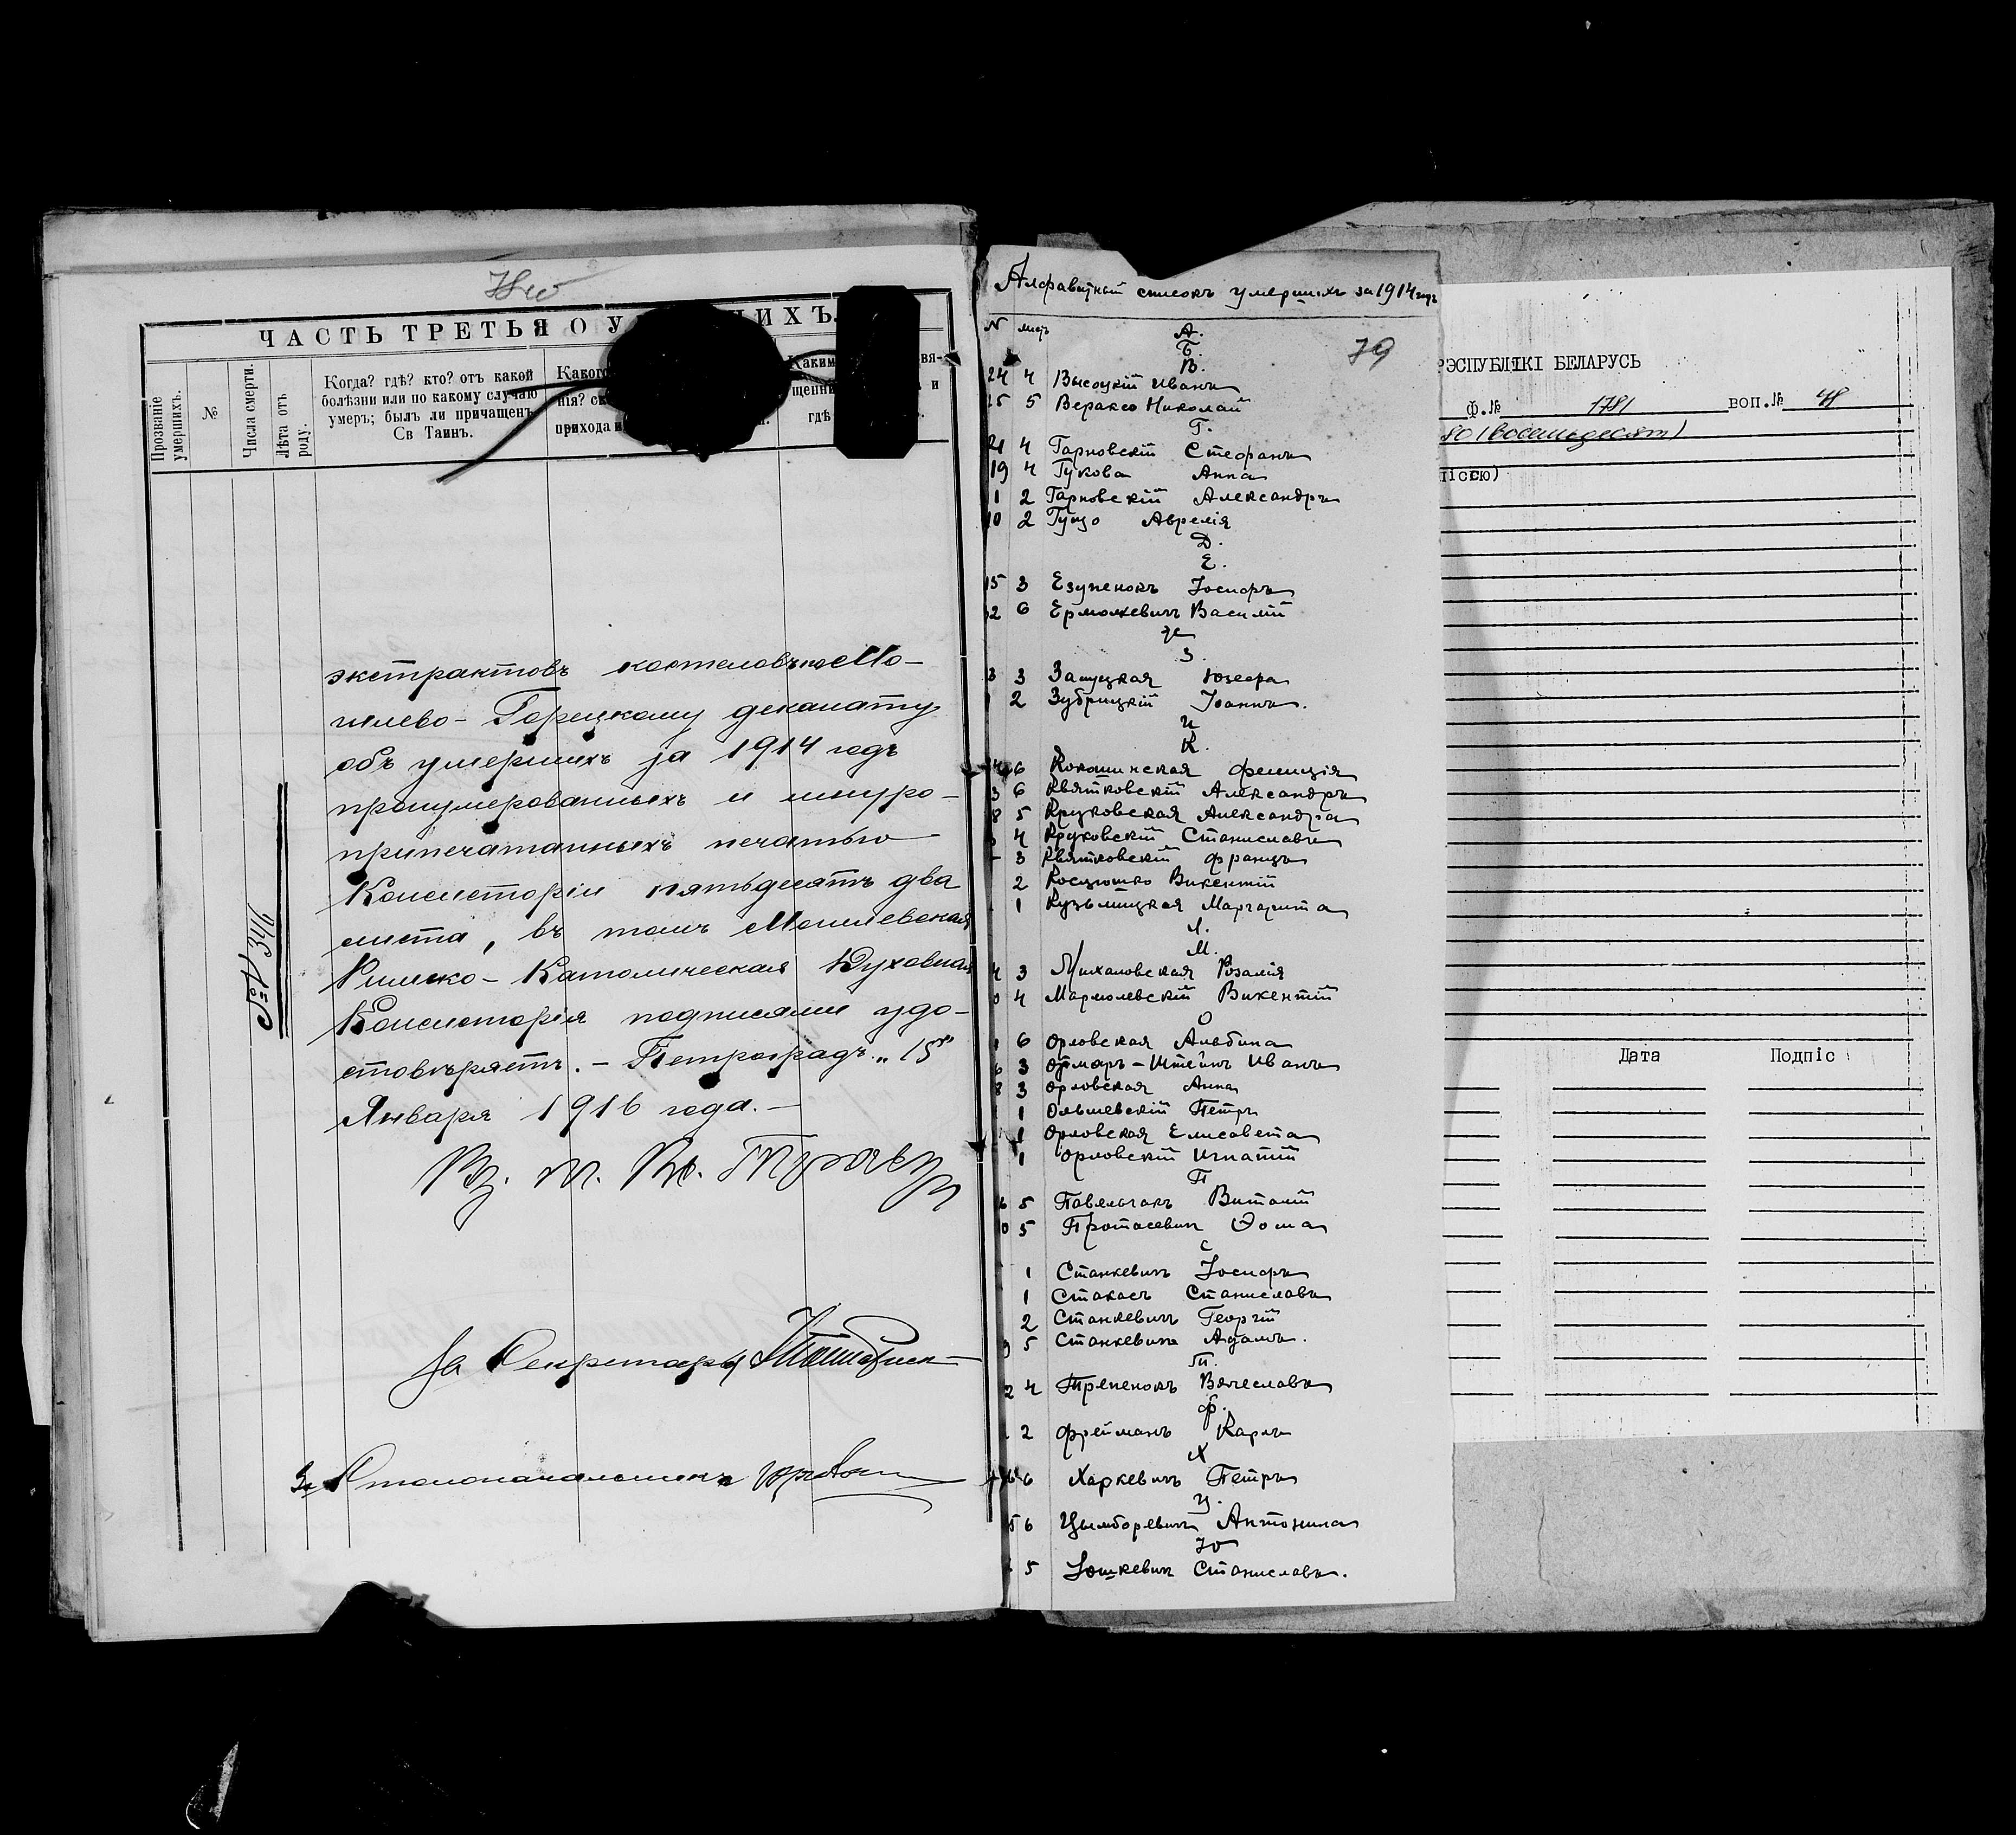 78 об
ЧАСТЬ ТРЕТЬЯ О У ИХЪ.
Прозваніе умершихъ.
№
Числа смерти.
Лѣта отъ роду.
Когда? гдѣ? кто? отъ какой
болѣзни или по какому случаю
умеръ; былъ ли причащенъ
Св Таинъ.
Какого
нія? ск
прихода и
Каким вя-
щенни и
гдѣ
№ 1341
экстрактовъ костеловъ по Мо-
гилево-Горецкому деканату
объ умершихъ за 1914 годъ
пронумерованныхъ и шнуро-
припечатанныхъ печатью
Консисторіи пятьдесятъ два
листа, въ томъ Могилевская
Римско-Католическая Духовная
Консисторія подписями удо-
стовѣряетъ. - Петроградъ. „15"
Января 1916 года. -
За Секретаря
За Столоначальника
Алфавитный списокъ умершихъ за 1914 годъ
79
N листъ
А.
Б.
В.
24 4 Высоцкій Иванъ
25 5 Вераксо Николай
Г.
21 4 Гарновскій Стефанъ
19 4 Гукова Анна
1 2 Гарновскій Александръ
10 2 Гуцо Аврелія
Д.
Е.
15 3 Езупенокъ Іосифъ
32 6 Ермолкевичъ Василій
Ж
З.
3 3 Залуцкая Юзефа
2 Зубрицкій Іоаннъ.
И
К.
6 Кокошинская Фелиція
3 6 Квятковскій Александръ
8 5 Круковская Александра
4 Круковскій Станиславъ
3 Квятковскій Францъ
2 Косцюшко Викентій
1 Кузьмицкая Маргарита
Л.
М.
4 3 Михаловская Розалія
0 4 Мармолевскій Викентій
О
6 Орловская Альбина
6 3 Ормаръ-Штейнъ Иванъ
8 3 Орловская Анна
1 Ольшевскій Петръ
1 Орловская Елисавета
1 Орловскій Игнатій
П
6 5 Павяльчакъ Виталій
0 5 Протасевичъ Ѳома
С
1 Станкевичъ Іосифъ
1 Стакасъ Станиславъ
2 Станкевичъ Георгій
9 5 Станкевичъ Адамъ.
Т.
2 4 Трепенокъ Вячеславъ
Ф.
2 Фрейманъ Карлъ
Х
6 Харкевичъ Петръ
Ц.
5 6 Цымборевичъ Антонина
Ю
5 Юшкевичъ Станиславъ.
РЭСПУБЛІКІ БЕЛАРУСЬ
Ф.№ 1781 ВОП.№
80 (восемьдесят)
ПІССЮ)
Дата Подпіс